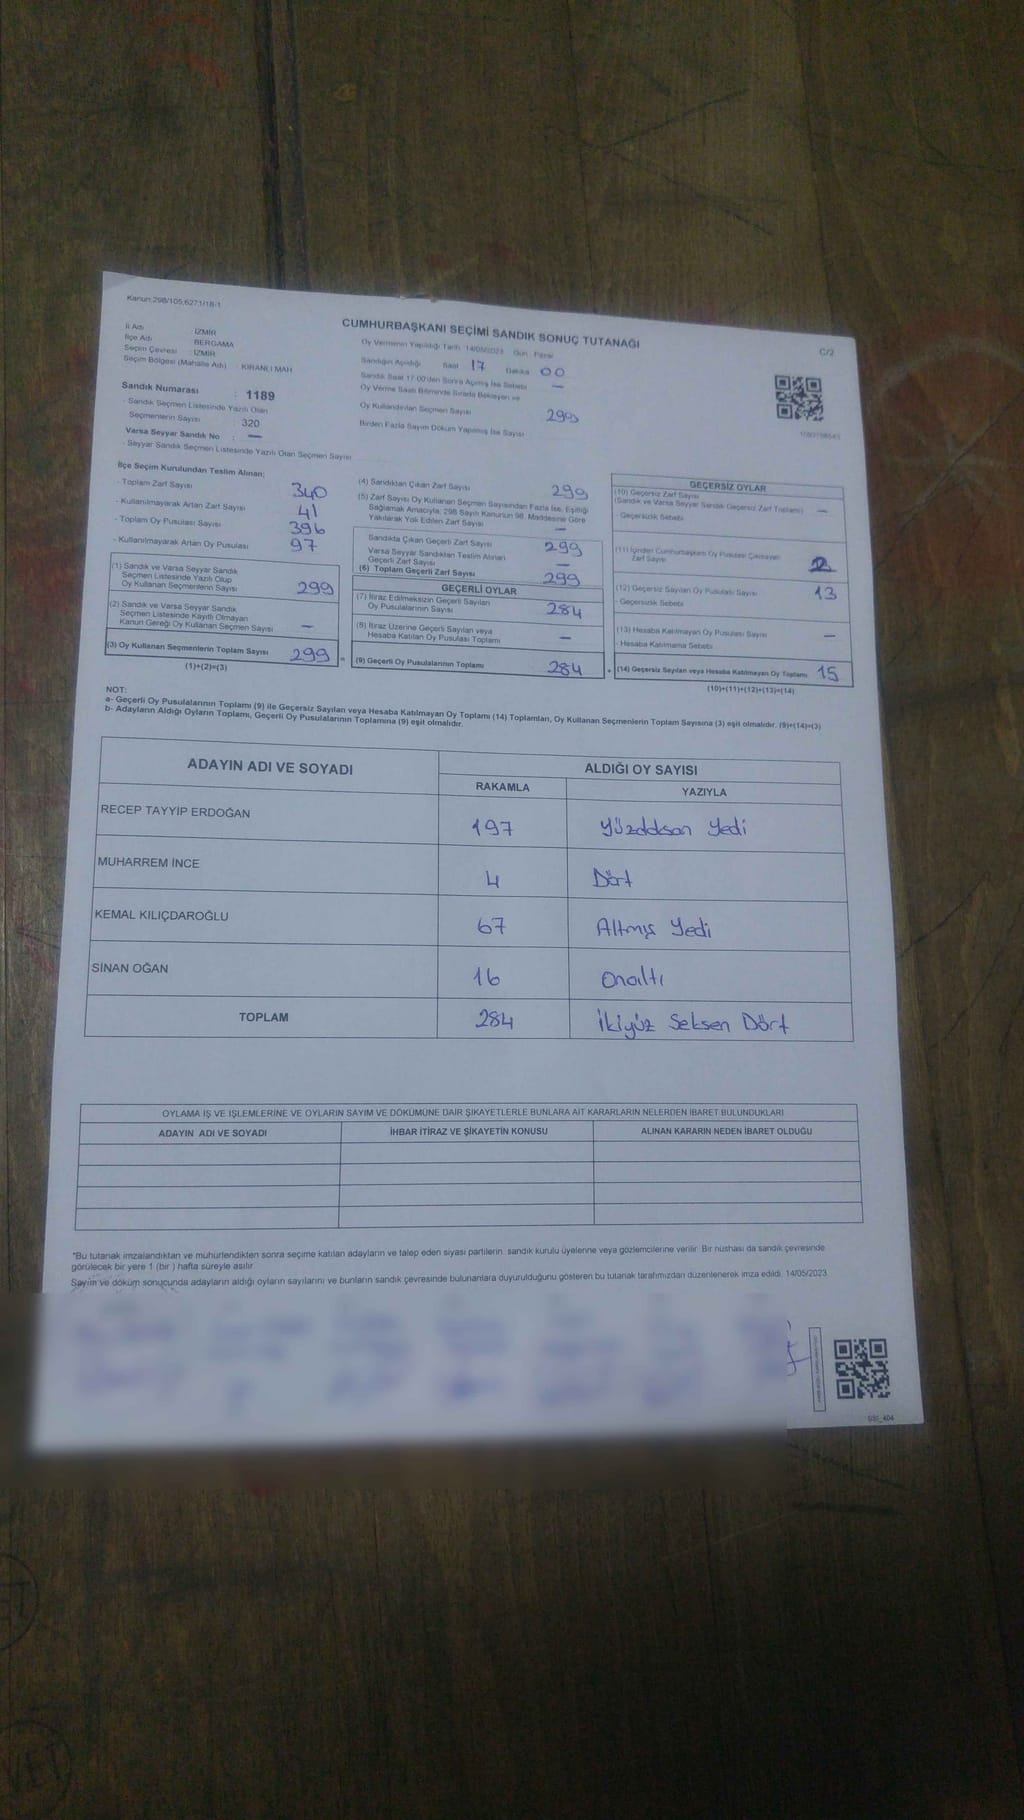 Kanun:298/105,6271/18-1
CUMHURBAŞKANI SEÇİMİ SANDIK SONUÇ TUTANAĞI
C/2
İl Adı : İZMİR
İlçe Adı : BERGAMA
Seçim Çevresi : İZMİR
Seçim Bölgesi (Mahalle Adı) : KIRANLI MAH
Sandık Numarası : 1189
- Sandık Seçmen Listesinde Yazılı Olan
Seçmenlerin Sayısı : 320
Varsa Seyyar Sandık No : —
- Seyyar Sandık Seçmen Listesinde Yazılı Olan Seçmen Sayısı
Oy Vermenin Yapıldığı Tarih 14/05/2023 Gün : Pazar
Sandığın Açıldığı Saat 17 Dakika 00
Sandık Saat 17:00'den Sonra Açılmış İse Sebebi —
Oy Verme Saati Bitiminde Sırada Bekleyen ve
Oy Kullandırılan Seçmen Sayısı 299
Birden Fazla Sayım Döküm Yapılmış İse Sayısı
İlçe Seçim Kurulundan Teslim Alınan;
- Toplam Zarf Sayısı 340
- Kullanılmayarak Artan Zarf Sayısı 41
- Toplam Oy Pusulası Sayısı 396
- Kullanılmayarak Artan Oy Pusulası 97
(1) Sandık ve Varsa Seyyar Sandık
Seçmen Listesinde Yazılı Olup
Oy Kullanan Seçmenlerin Sayısı 299
(2) Sandık ve Varsa Seyyar Sandık
Seçmen Listesinde Kayıtlı Olmayan
Kanun Gereği Oy Kullanan Seçmen Sayısı —
(3) Oy Kullanan Seçmenlerin Toplam Sayısı 299 =
(1)+(2)=(3)
(4) Sandıktan Çıkan Zarf Sayısı 299
(5) Zarf Sayısı Oy Kullanan Seçmen Sayısından Fazla İse, Eşitliği
Sağlamak Amacıyla, 298 Sayılı Kanunun 98. Maddesine Göre
Yakılarak Yok Edilen Zarf Sayısı —
Sandıkta Çıkan Geçerli Zarf Sayısı 299
Varsa Seyyar Sandıktan Teslim Alınan
Geçerli Zarf Sayısı —
(6) Toplam Geçerli Zarf Sayısı 299
GEÇERLİ OYLAR
(7) İtiraz Edilmeksizin Geçerli Sayılan
Oy Pusulalarının Sayısı 284
(8) İtiraz Üzerine Geçerli Sayılan veya
Hesaba Katılan Oy Pusulası Toplamı —
(9) Geçerli Oy Pusulalarının Toplamı 284 +
GEÇERSİZ OYLAR
(10) Geçersiz Zarf Sayısı
(Sandık ve Varsa Seyyar Sandık Geçersiz Zarf Toplamı) —
- Geçersizlik Sebebi
(11) İçinden Cumhurbaşkanı Oy Pusulası Çıkmayan
Zarf Sayısı 2
(12) Geçersiz Sayılan Oy Pusulası Sayısı 13
- Geçersizlik Sebebi
(13) Hesaba Katılmayan Oy Pusulası Sayısı —
- Hesaba Katılmama Sebebi
(14) Geçersiz Sayılan veya Hesaba Katılmayan Oy Toplamı 15
(10)+(11)+(12)+(13)=(14)
NOT:
a- Geçerli Oy Pusulalarının Toplamı (9) ile Geçersiz Sayılan veya Hesaba Katılmayan Oy Toplamı (14) Toplamları, Oy Kullanan Seçmenlerin Toplam Sayısına (3) eşit olmalıdır. (9)+(14)=(3)
b- Adayların Aldığı Oyların Toplamı, Geçerli Oy Pusulalarının Toplamına (9) eşit olmalıdır.
ADAYIN ADI VE SOYADI ALDIĞI OY SAYISI
RAKAMLA YAZIYLA
RECEP TAYYİP ERDOĞAN 197 Yüzdoksan Yedi
MUHARREM İNCE 4 Dört
KEMAL KILIÇDAROĞLU 67 Altmış Yedi
SİNAN OĞAN 16 Onaltı
TOPLAM 284 İkiyüz Seksen Dört
OYLAMA İŞ VE İŞLEMLERİNE VE OYLARIN SAYIM VE DÖKÜMÜNE DAİR ŞİKAYETLERLE BUNLARA AİT KARARLARIN NELERDEN İBARET BULUNDUKLARI
ADAYIN ADI VE SOYADI İHBAR İTİRAZ VE ŞİKAYETİN KONUSU ALINAN KARARIN NEDEN İBARET OLDUĞU
*Bu tutanak imzalandıktan ve mühürlendikten sonra seçime katılan adayların ve talep eden siyasi partilerin sandık kurulu üyelerine veya gözlemcilerine verilir. Bir nüshası da sandık çevresinde
görülecek bir yere 1 (bir ) hafta süreyle asılır
Sayım ve döküm sonucunda adayların aldığı oyların sayılarını ve bunların sandık çevresinde bulunanlara duyurulduğunu gösteren bu tutanak tarafımızdan düzenlenerek imza edildi. 14/05/2023